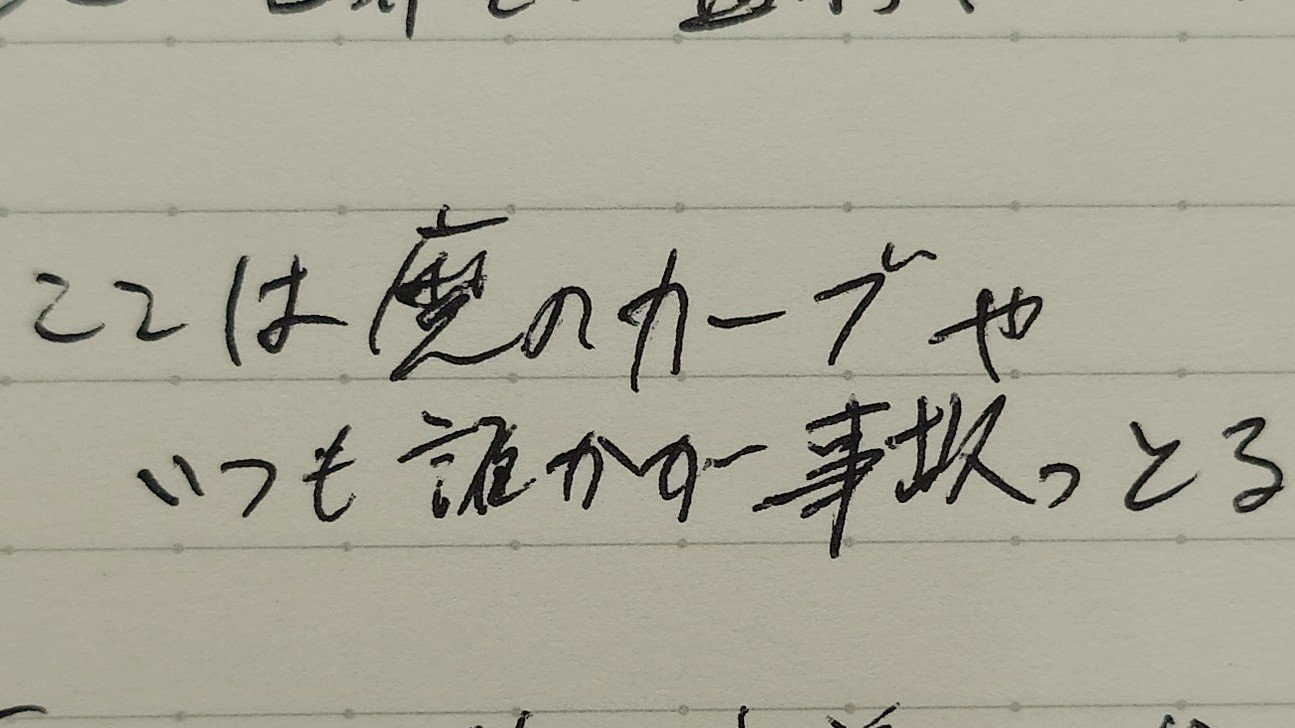 ここは魔のカーブや
いつも誰かが事故っとる